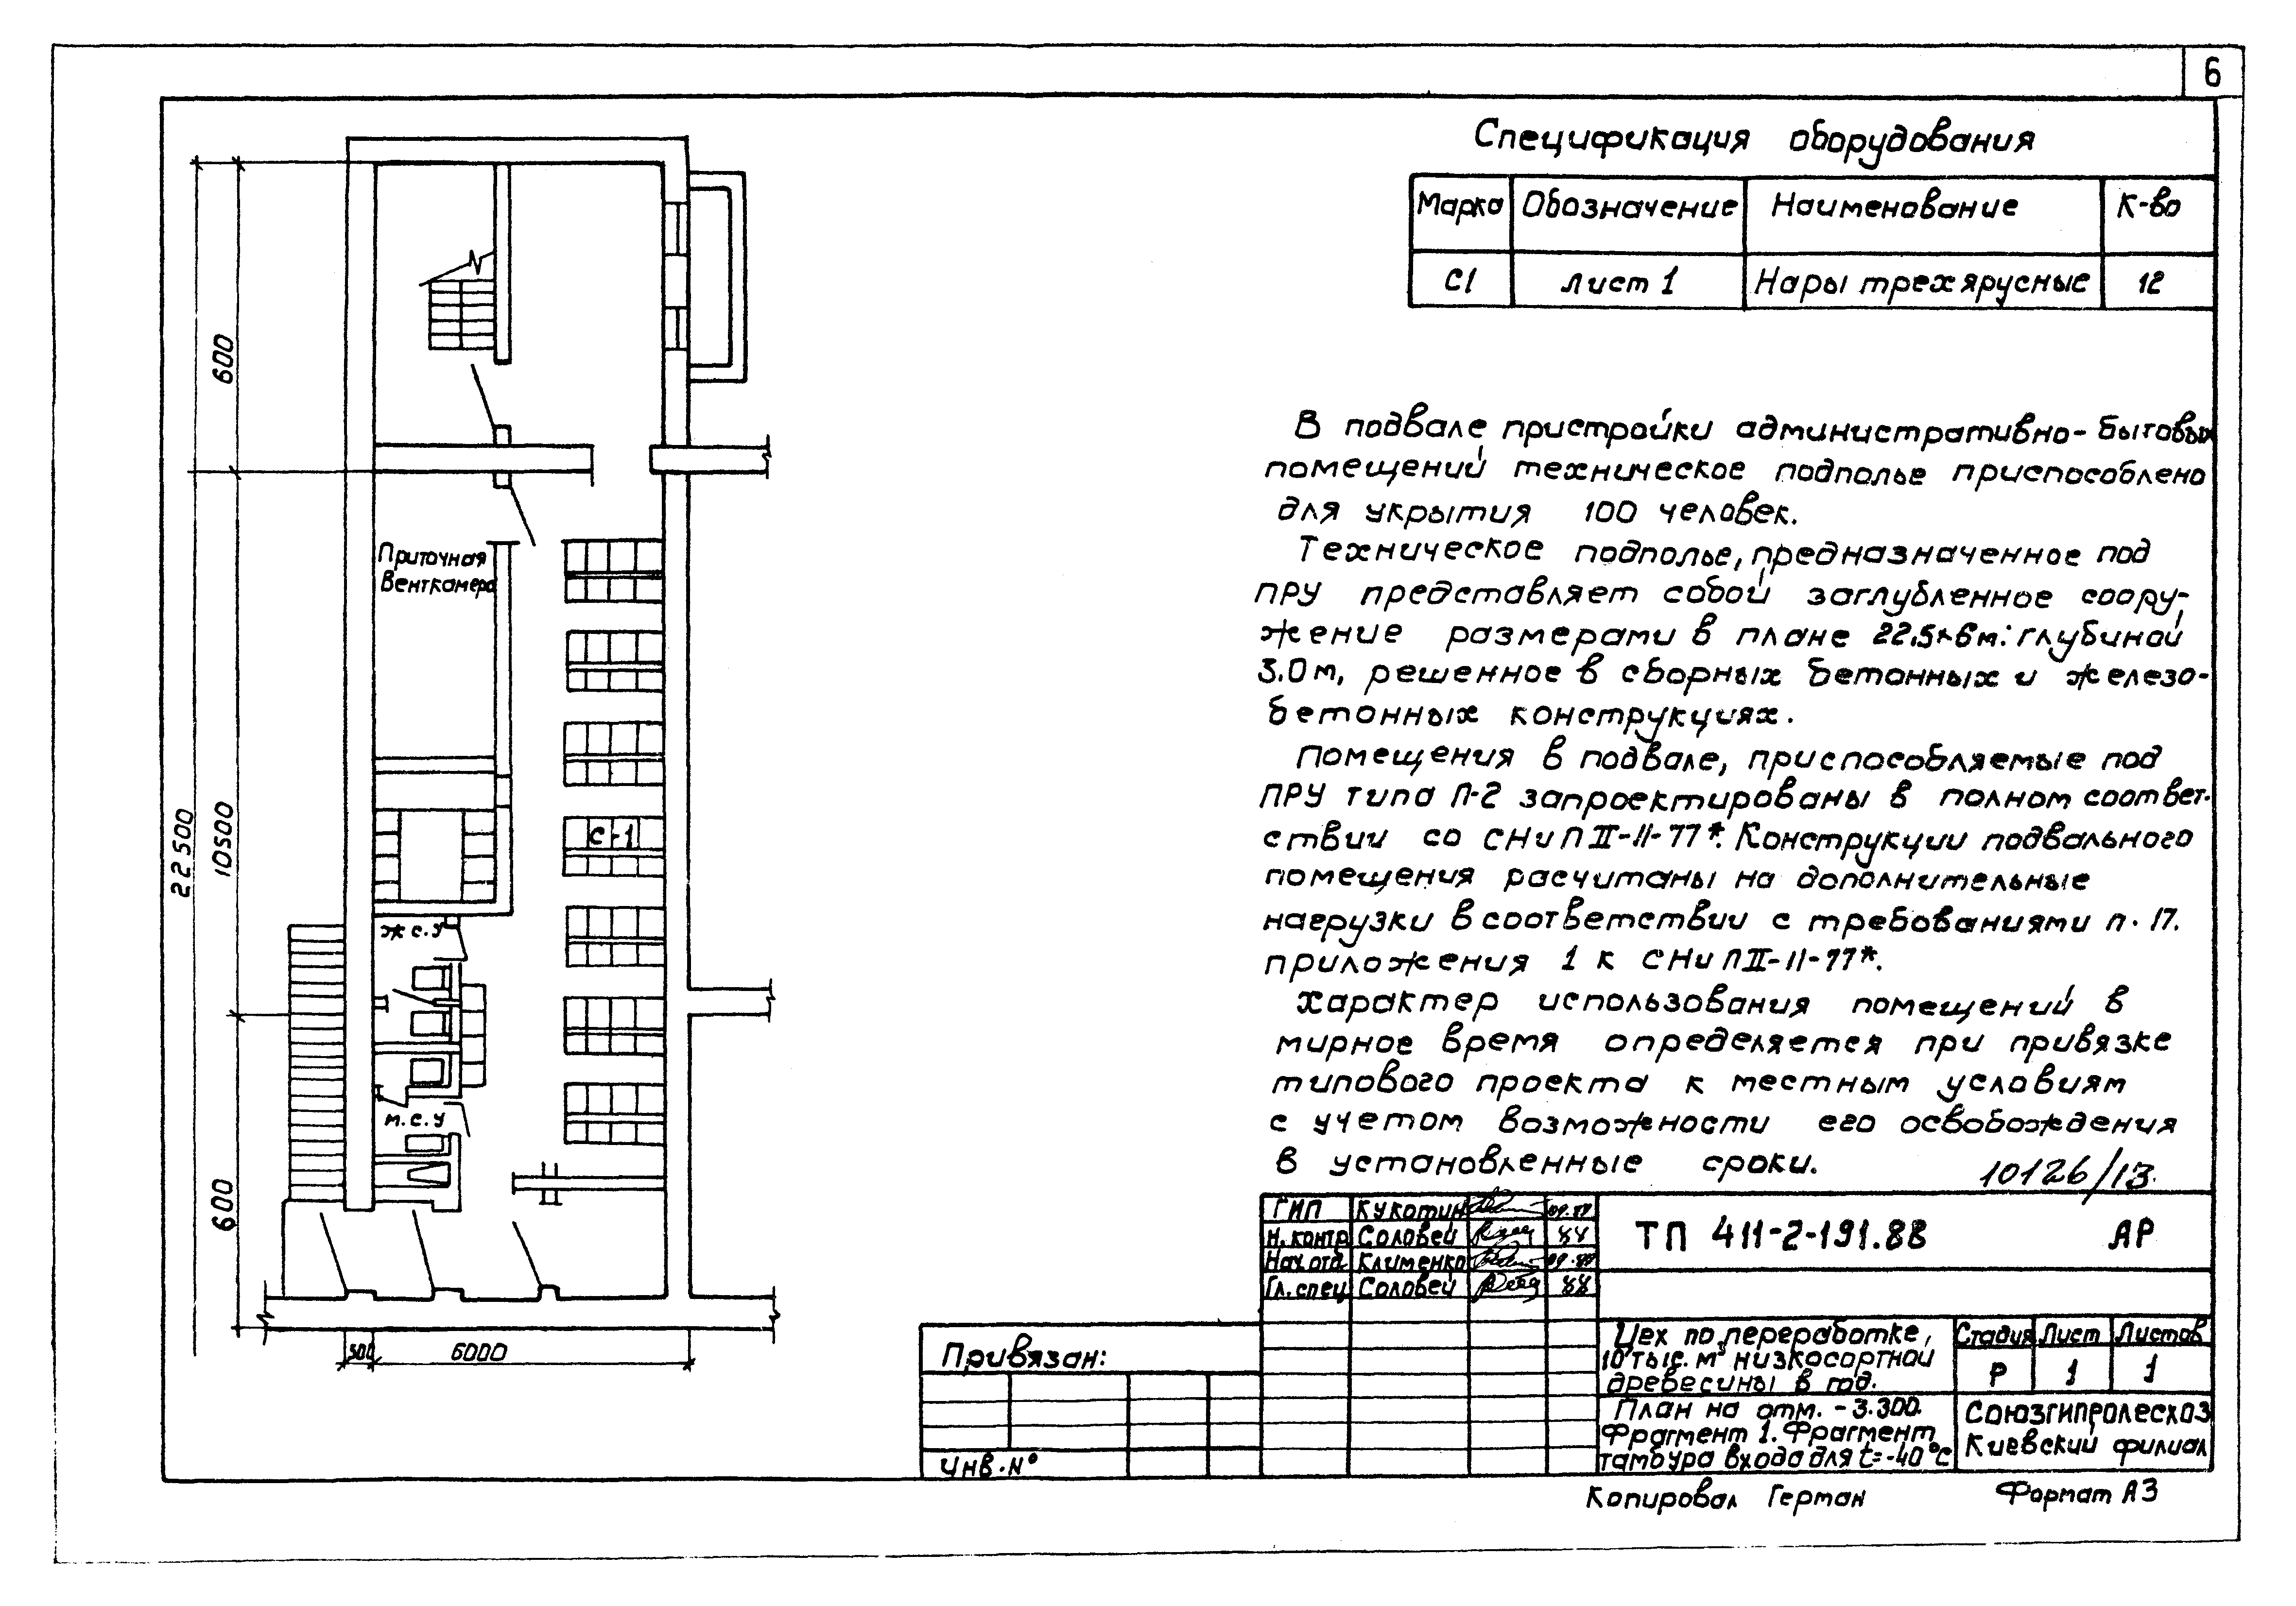 6
Спецификация оборудования
Марка Обозначение Наименование К-во
С1 лист 1 Нары трехярусные 12
В подвале пристройки административно-бытовых
помещений техническое подполье приспособлено
для укрытия 100 человек.
Техническое подполье, предназначенное под
ПРУ представляет собой заглубленное соору-
жение размерами в плане 22,5×6м. глубиной
3.0м, решенное в сборных бетонных и железо-
бетонных конструкциях.
Помещения в подвале, приспособляемые под
ПРУ типа П-2 запроектированы в полном соответ-
ствии со СНиП II-11-77*. Конструкции подвального
помещения расчитаны на дополнительные
нагрузки в соответствии с требованиями п. 17.
приложения 1 к СНиП II-11-77*.
Характер использования помещений в
мирное время определяется при привязке
типового проекта к местным условиям
с учетом возможности его освобождения
в установленные сроки.
10126/13
600
10500
22500
600
500
6000
Приточная
Венткамера
С-1
ж с.у
м.с.у
ГИП Кукотин
Н.контр Соловей 88
Нач.отд Клименко
Гл.спец Соловей 88
ТП 411-2-191.88 АР
Цех по переработке,
10 тыс. м³ низкосортной
древесины в год.
Стадия Лист Листов
Р 1 1
План на отм. -3.300.
Фрагмент 1. Фрагмент
тамбура входа для t=-40°С
Союзгипролесхоз
Киевский филиал
Привязан:
Инв.N°
Копировал Герман
Формат А3